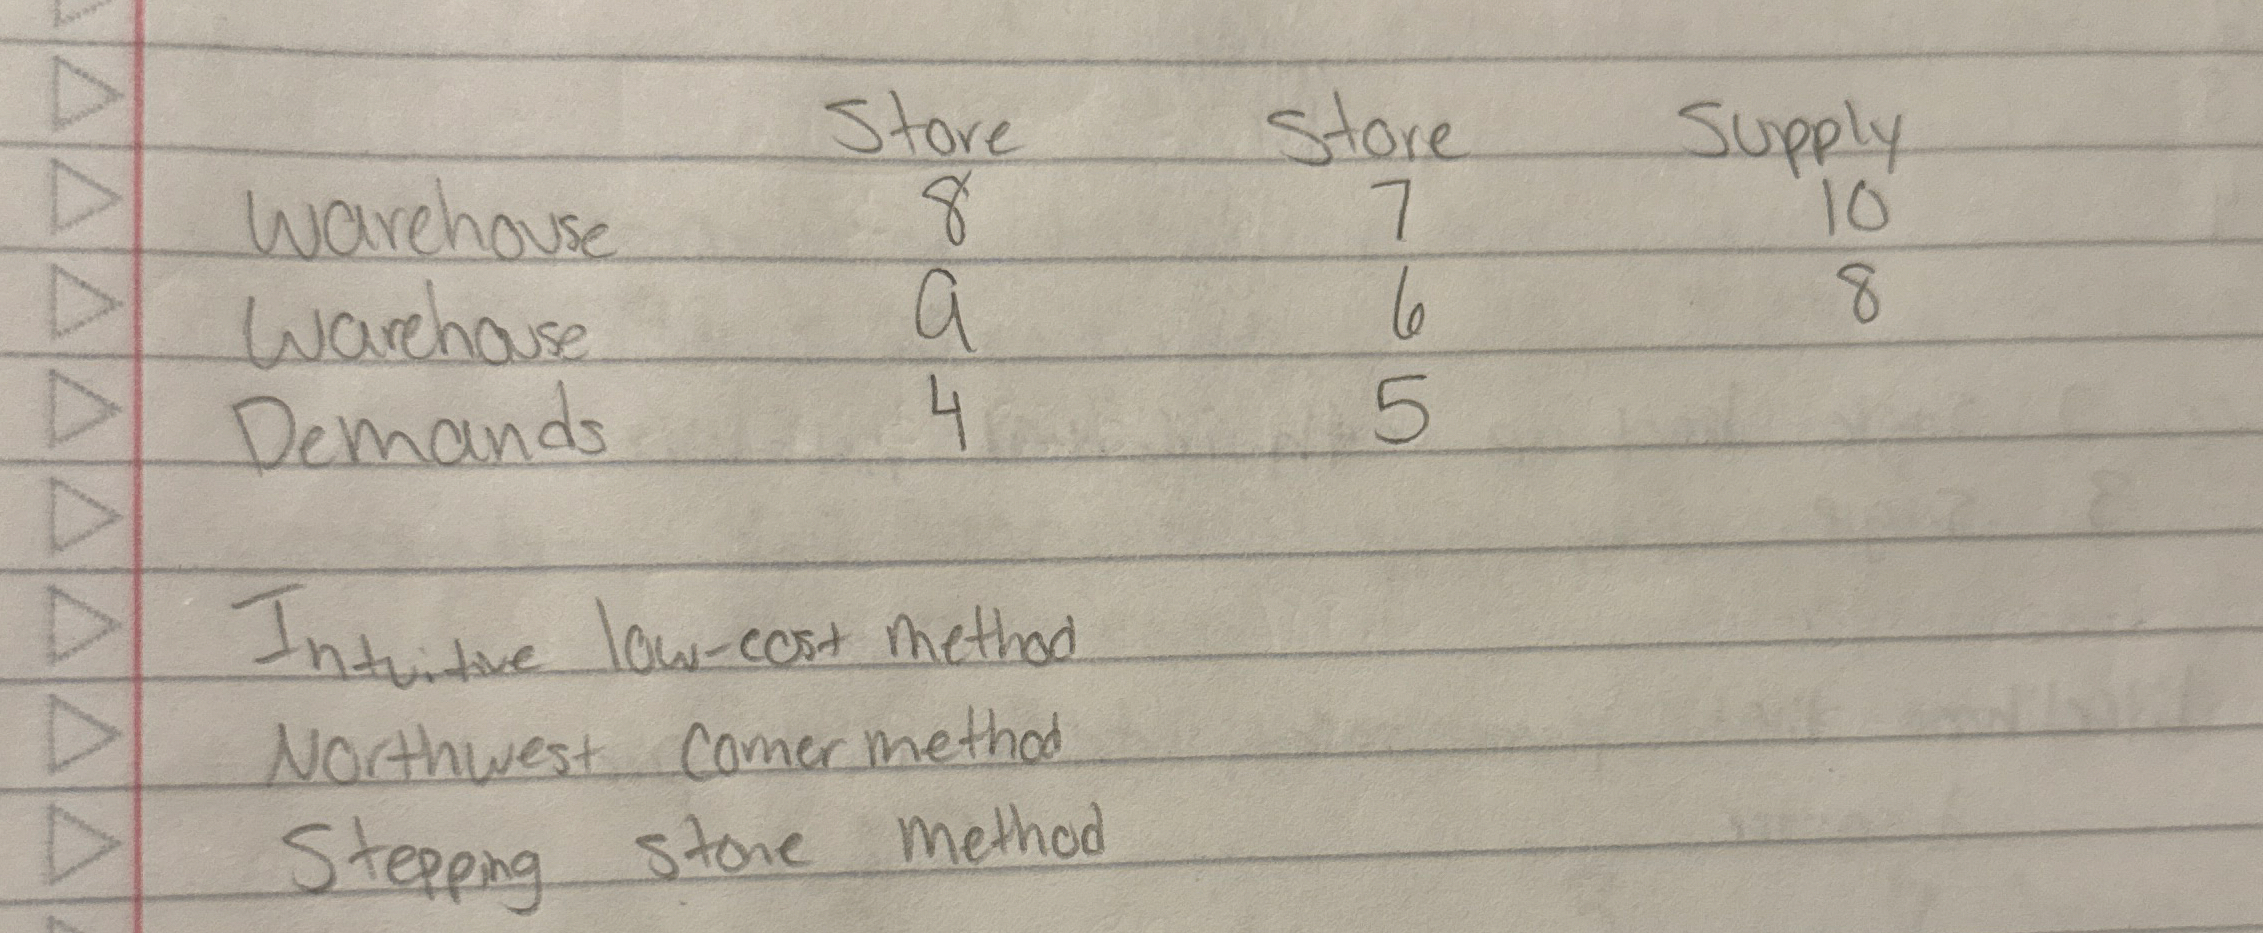 Store Store Supply
Warehouse 8 7 10
Warehouse 9 6 8
Demands 4 5
Intuitive low-cost method
Northwest Corner method
Stepping stone method